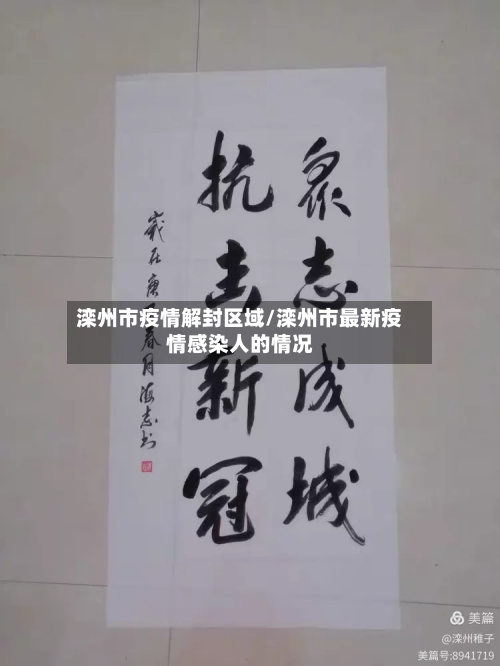 众志成城
抗击新冠
岁在庚子春月海志书
滦州市疫情解封区域/滦州市最新疫
情感染人的情况
美篇
@滦州稚子
美篇号:8941719